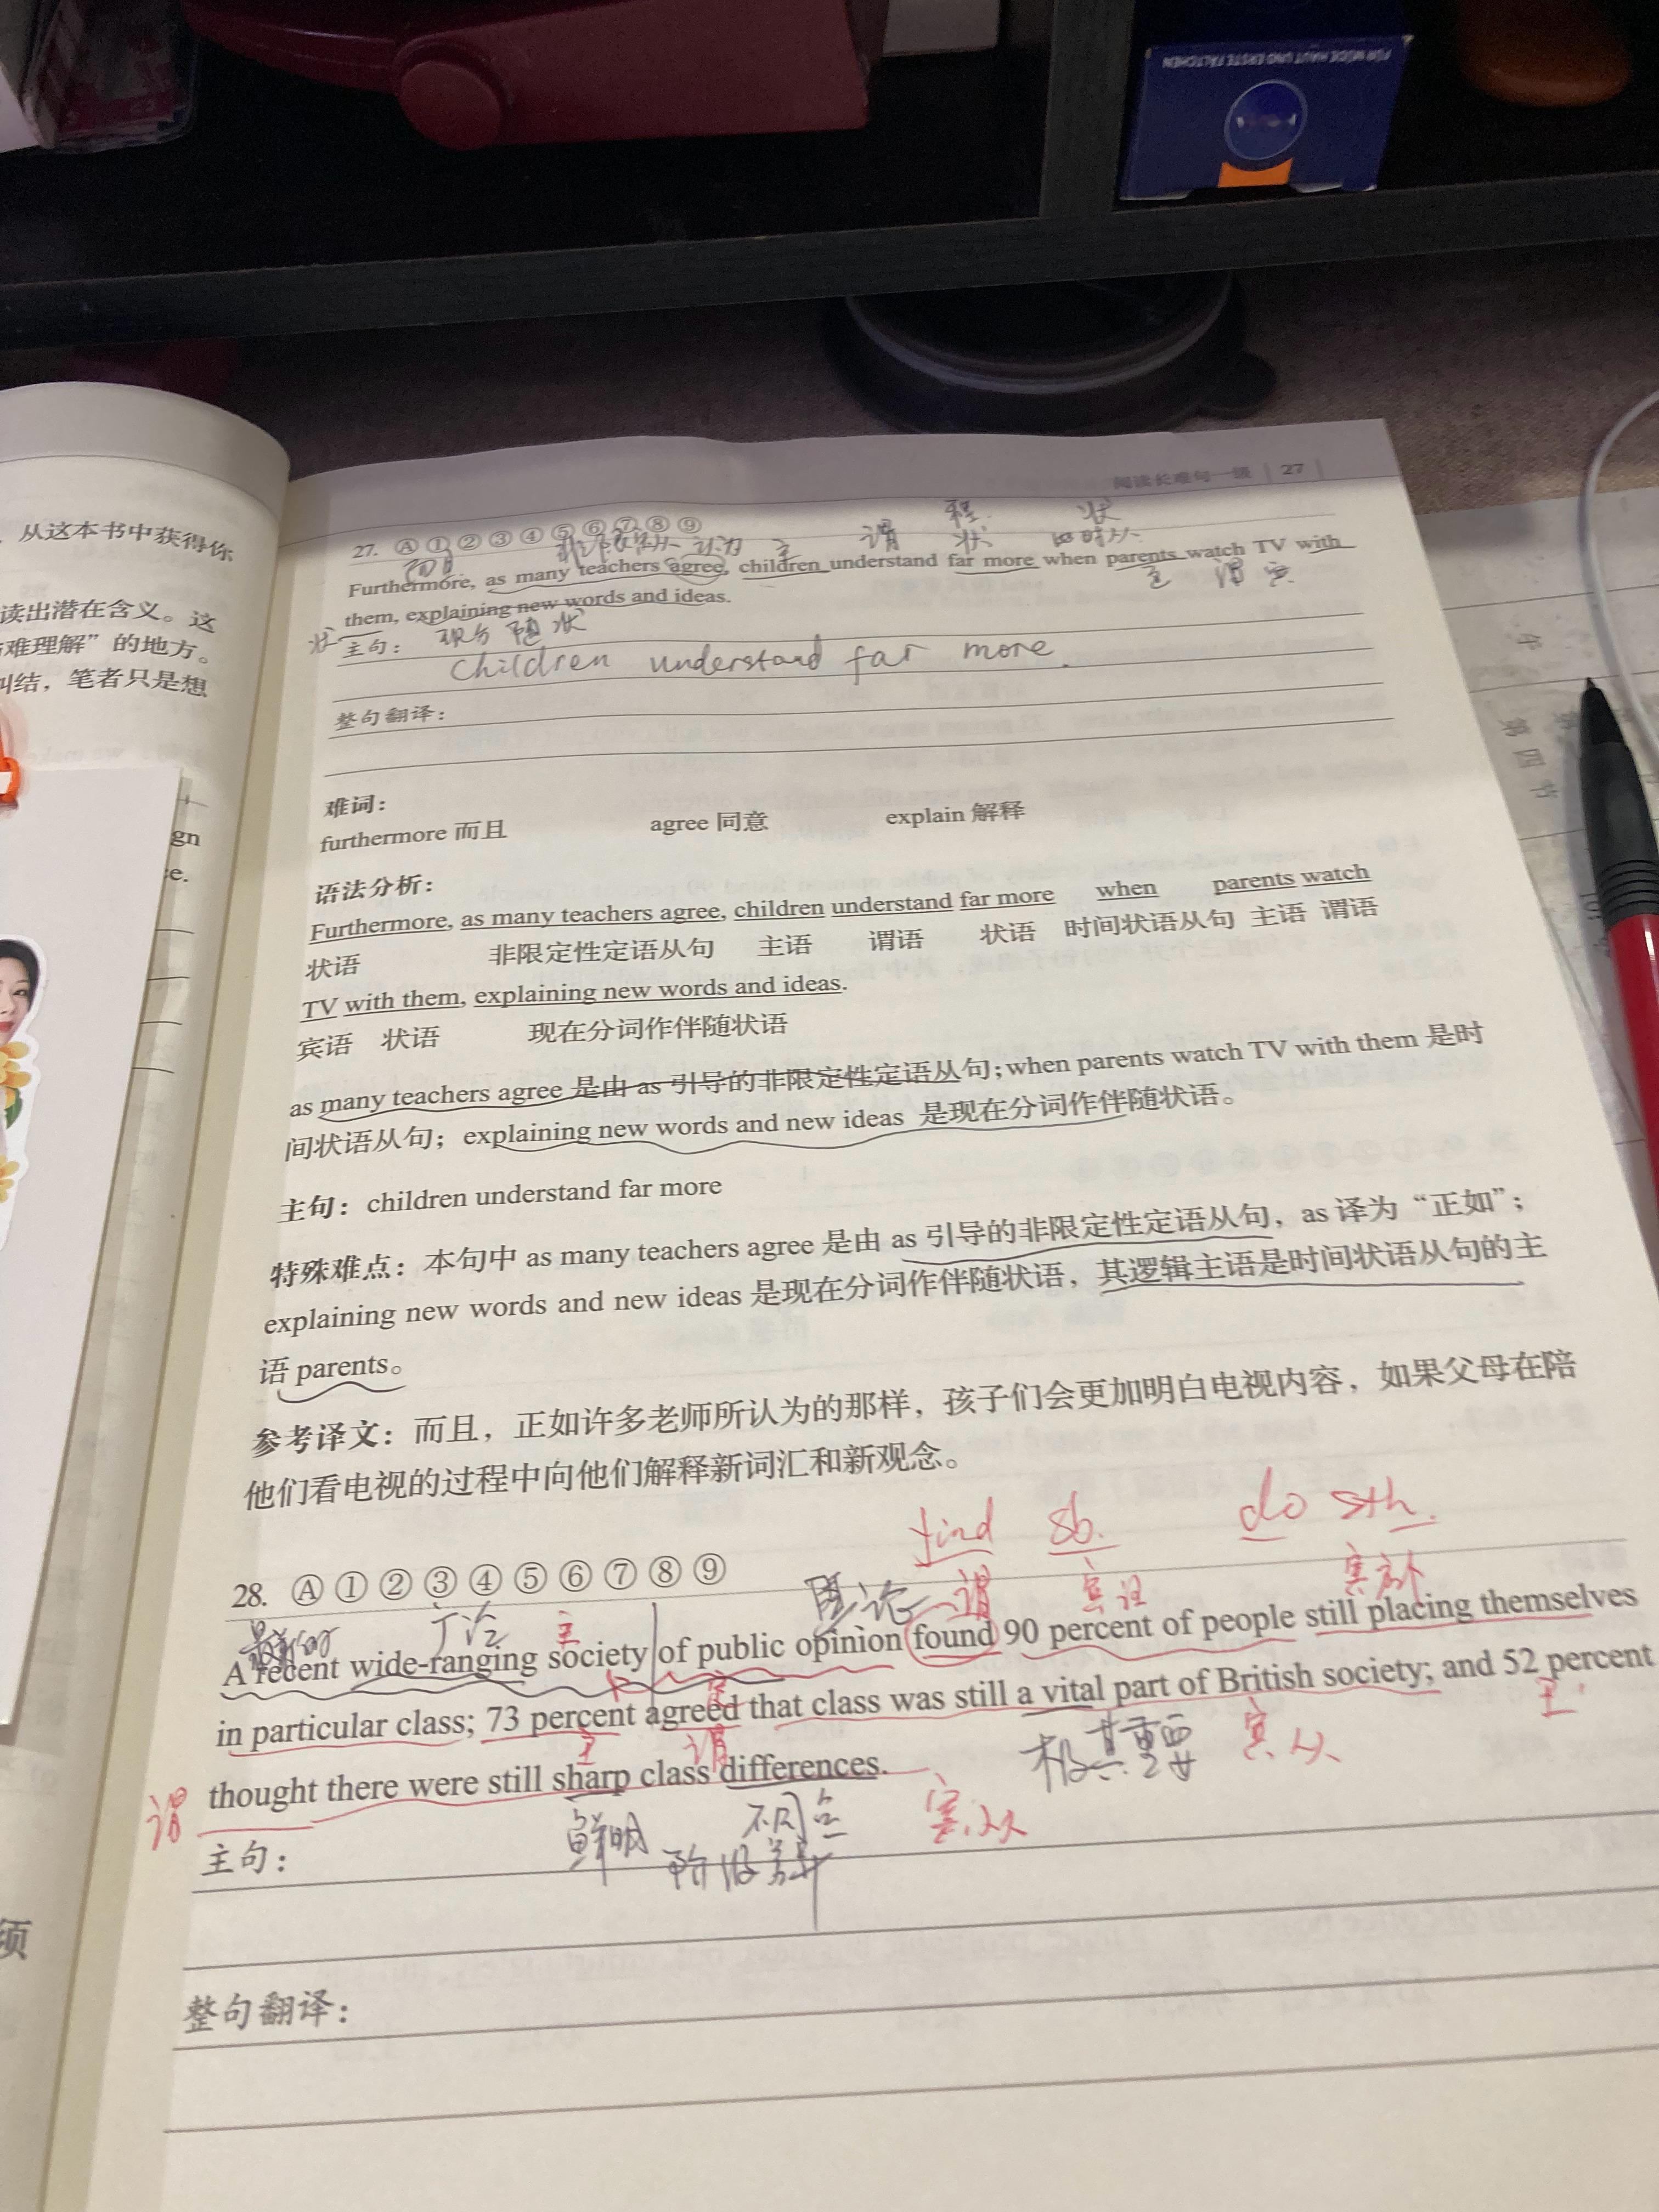 FÜR MÜDE HAUT UND ERSTE FÄLTCHEN
阅读长难句一级 | 27
从这本书中获得你
读出潜在含义。这
难理解”的地方。
纠结，笔者只是想
gn
e.
须
27. Ⓐ ① ② ③ ④ ⑤ ⑥ ⑦ ⑧ ⑨
谓 程 状
主 状
Furthermore, as many teachers agree, children understand far more when parents watch TV with
主 谓 宾
them, explaining new words and ideas.
状 现分 随状
主句：
Children understand far more.
整句翻译：
难词：
furthermore 而且 agree 同意 explain 解释
语法分析：
Furthermore, as many teachers agree, children understand far more when parents watch
状语 非限定性定语从句 主语 谓语 状语 时间状语从句 主语 谓语
TV with them, explaining new words and ideas.
宾语 状语 现在分词作伴随状语
as many teachers agree 是由 as 引导的非限定性定语从句；when parents watch TV with them 是时
间状语从句；explaining new words and new ideas 是现在分词作伴随状语。
主句：children understand far more
特殊难点：本句中 as many teachers agree 是由 as 引导的非限定性定语从句，as 译为“正如”；
explaining new words and new ideas 是现在分词作伴随状语，其逻辑主语是时间状语从句的主
语 parents。
参考译文：而且，正如许多老师所认为的那样，孩子们会更加明白电视内容，如果父母在陪
他们看电视的过程中向他们解释新词汇和新观念。
find sb. do sth.
28. Ⓐ ① ② ③ ④ ⑤ ⑥ ⑦ ⑧ ⑨
主 谓 宾语 宾补
A recent wide-ranging society of public opinion found 90 percent of people still placing themselves
in particular class; 73 percent agreed that class was still a vital part of British society; and 52 percent
主 谓 极其重要 宾从 主
thought there were still sharp class differences.
谓 鲜明 不同点 宾从
阶级差异
主句：
整句翻译：